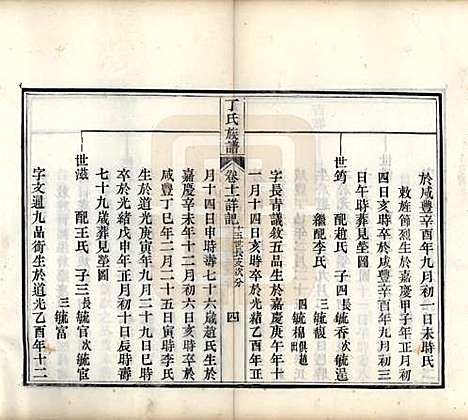 於咸豐辛酉年九月初一日未時氏
敕旌節烈生於嘉慶甲子年正月初
四日亥時卒於咸豐辛酉年九月三
日午時葬見塋圖
世筠 配趙氏 子四長毓香次毓逞
繼配李氏 三毓馥
四毓棉俱趙出
字長青議敘五品生於嘉慶庚午年十
一月十四日亥時卒於光緒乙酉年正
丁氏族譜
卷十二詳記
四
月十四日申時壽七十六歲趙氏生於
嘉慶辛未年十二月初四日亥時卒於
咸豐丁巳年二月二十五日寅時李氏
生於道光庚寅年九月二十九日巳時
卒於光緒戊申年正月初十日丑時壽
七十九歲葬見塋圖
世滋 配王氏 子三長毓官次毓宦
三毓富
字文通九品銜生於道光乙酉年十二